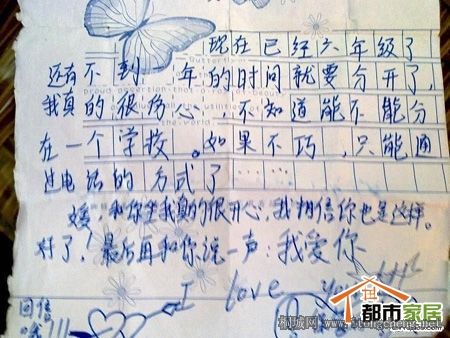 现在已经六年级了
还有不到一年的时间就要分开了，
我真的很伤心，不知道能不能分
在一个学校。如果不巧，只能通
过电话的方式了……
媛，和你坐我真的很开心，我相信你也是这样。
好了！最后再和你说一声：我爱你
I love you!!!
回信
哦!!!
都市家居
桐城网